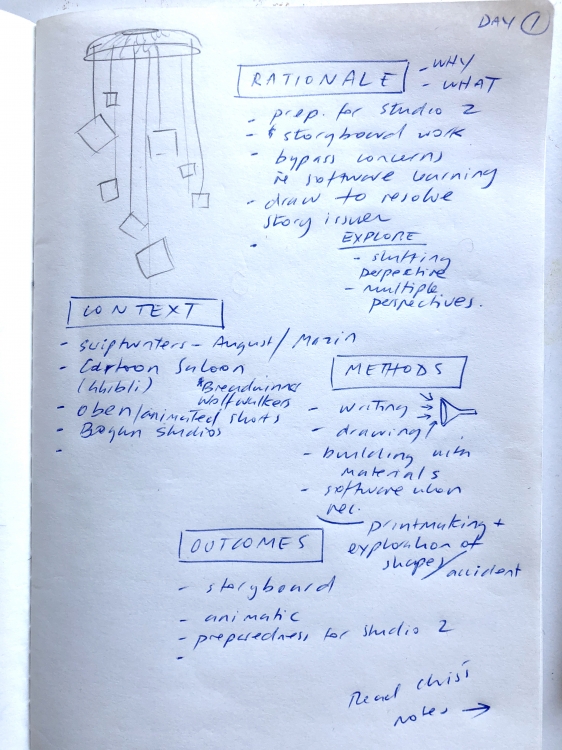 DAY 1
RATIONALE
- WHY
- WHAT
- prep. for studio 2
- storyboard work
- bypass concerns
re software learning
- draw to resolve
story issues
-
EXPLORE
- shifting
perspective
- multiple
perspectives.
CONTEXT
- scriptwriters - August/Mazin
- Cartoon Saloon
(Ghibli) * Breadwinner
Wolfwalkers
- /animated shorts
- Studios
-
METHODS
- writing
- drawing/
- building with
materials
- software when
nec.
printmaking +
exploration of
shapes/accident
OUTCOMES
- storyboard
- animatic
- preparedness for studio 2
-
Read
notes →